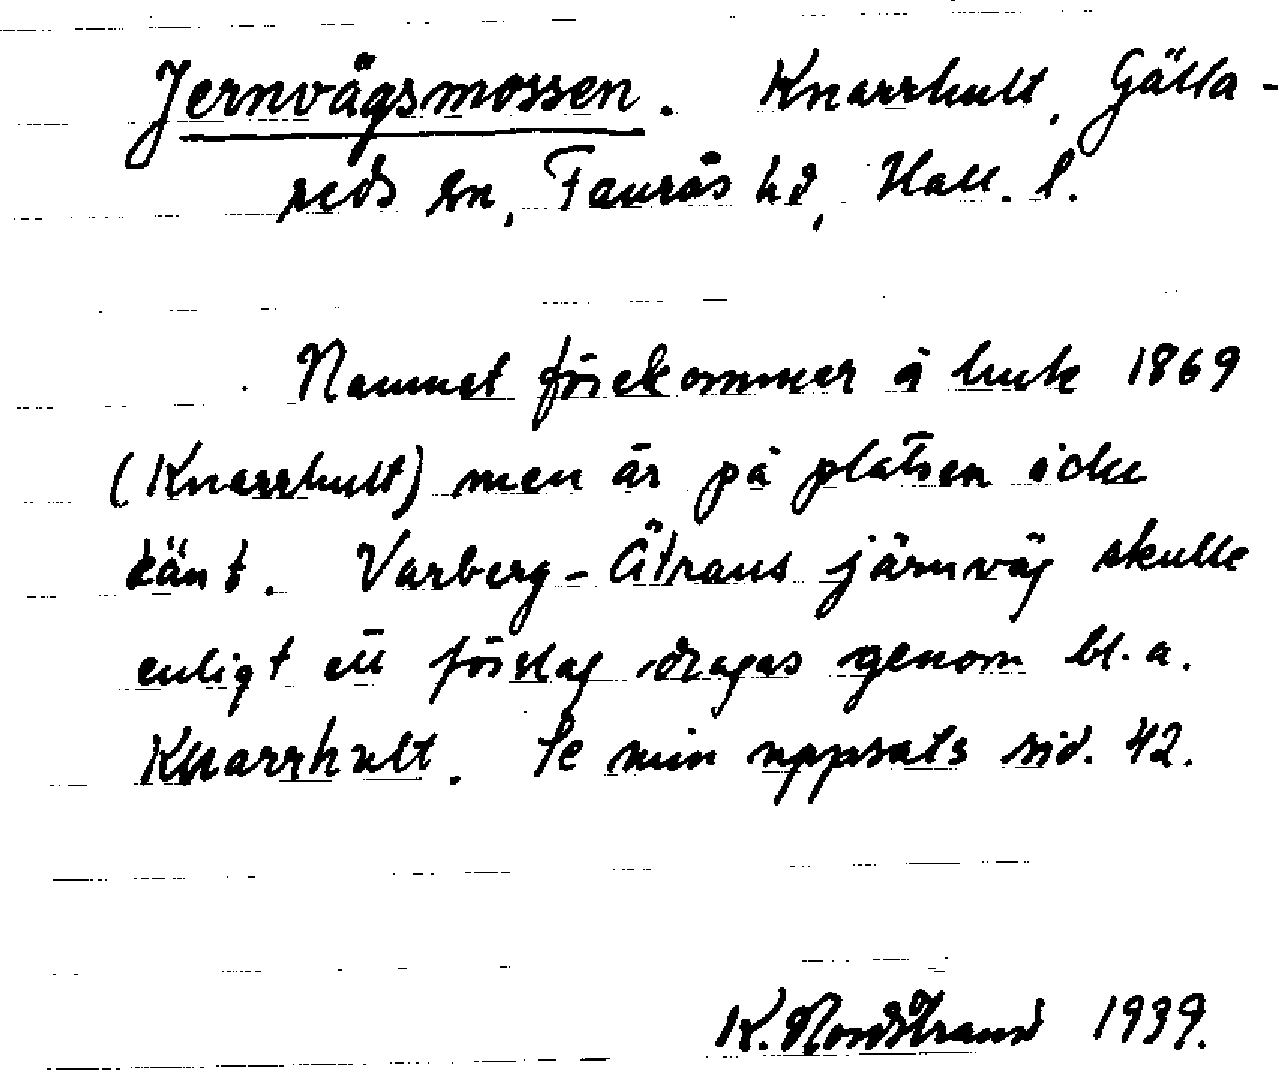 Jernvägsmossen. Knarrhult, Gälla-
reds sn, Faurås hd, Hall. l.
Namnet förekommer å lmtk 1869
(Knarrhult) men är på platsen icke
känt. Varberg-Ätrans järnväg skulle
enligt ett förslag dragas genom bl.a.
Knarrhult. Se min uppsats sid. 42.
K. Nordstrand 1939.